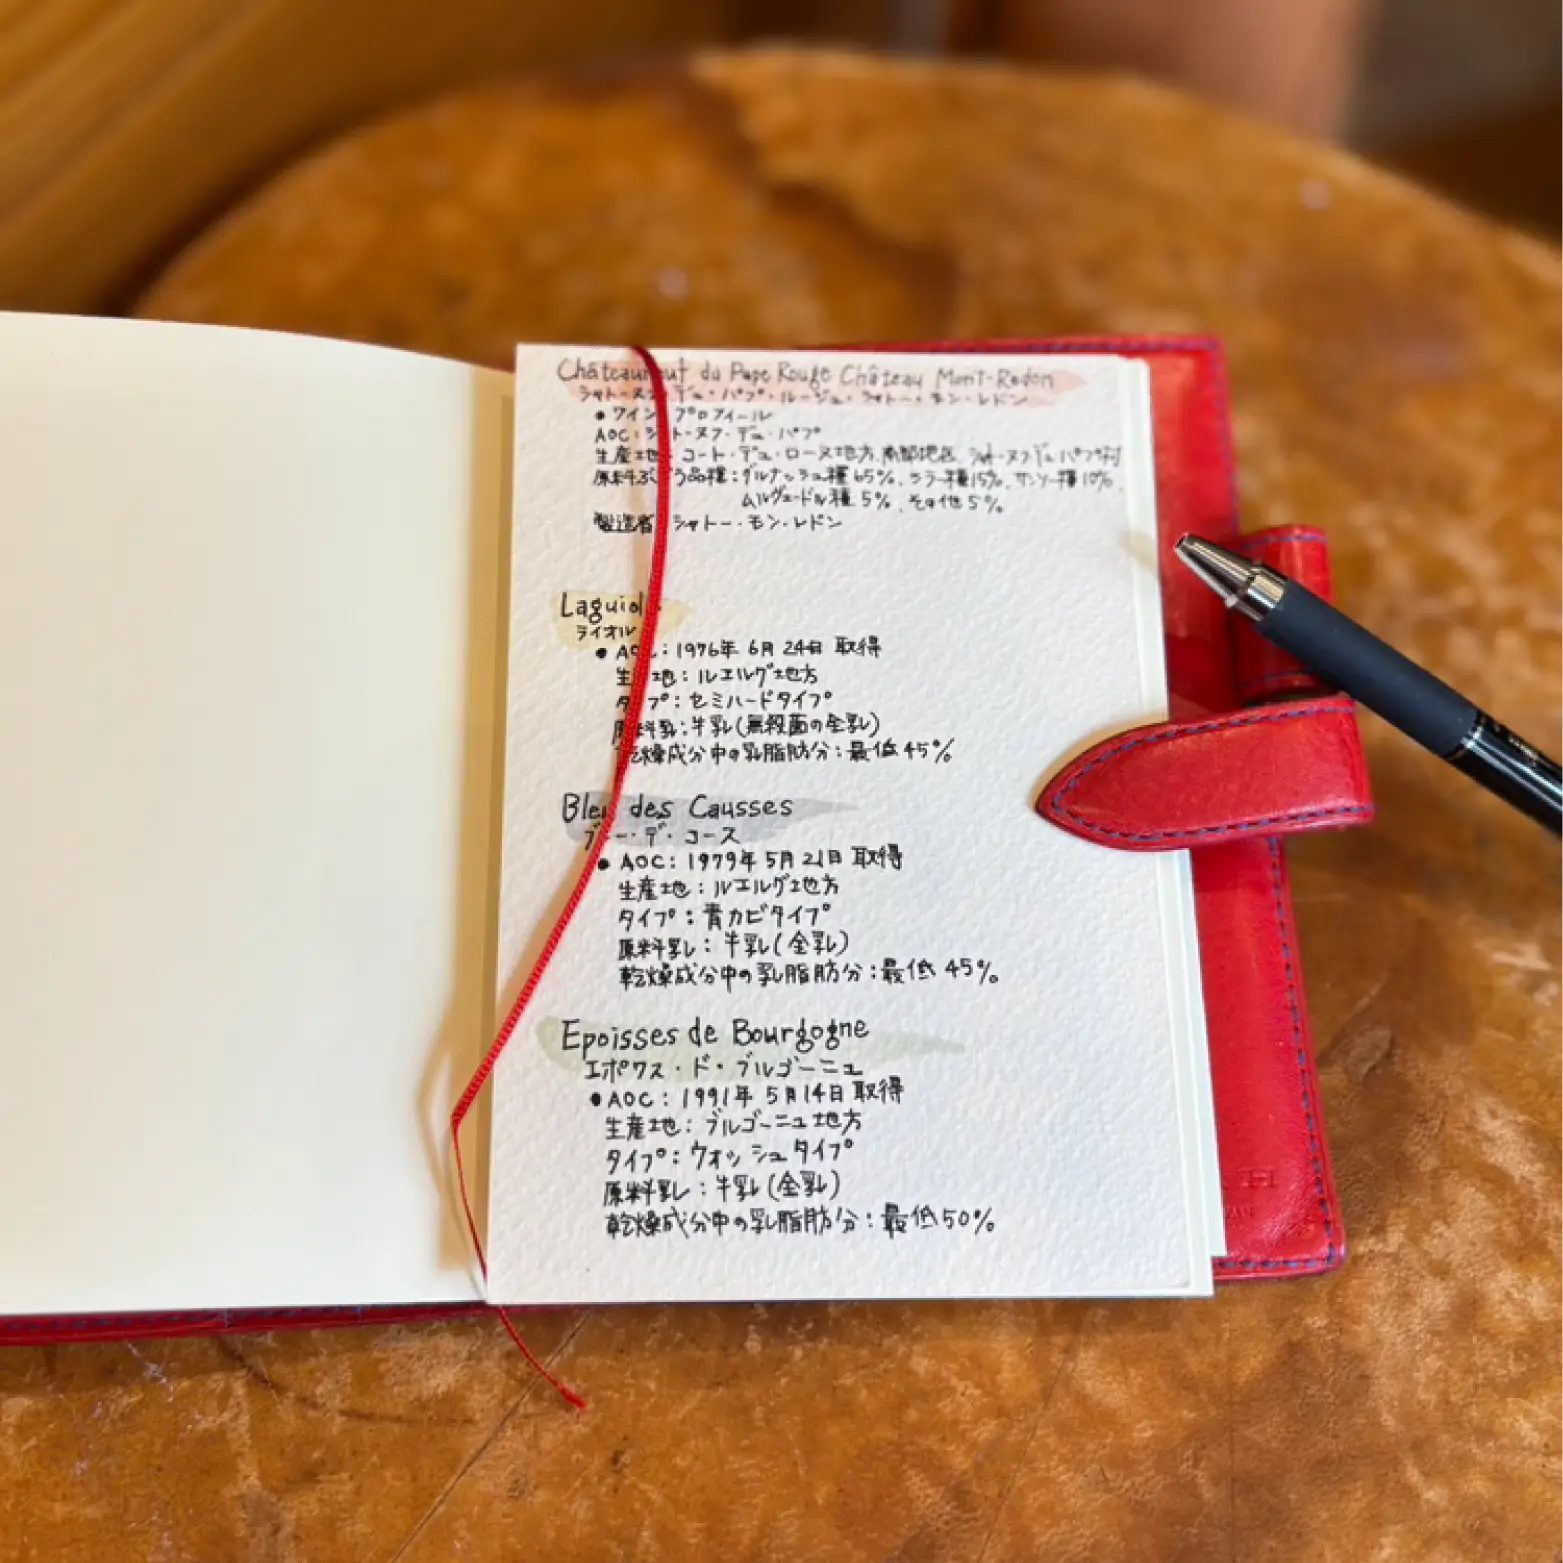 Châteauneuf du Pape Rouge Château Mont-Redon
シャトーヌフ・デュ・パプ・ルージュ・シャトー・モン・レドン
● ワインプロフィール
AOC:シャトーヌフ・デュ・パプ
生産地:コート・デュ・ローヌ地方、南部地区、シャトーヌフ・デュ・パプ村
原料ぶどう品種:グルナッシュ種65%、シラー種15%、サンソー種10%、
ムルヴェードル種5%、その他5%
製造者:シャトー・モン・レドン
Laguiole
ライオル
● AOC:1976年6月24日 取得
生産地:ルエルグ地方
タイプ:セミハードタイプ
原料乳:牛乳(無殺菌の全乳)
乾燥成分中の乳脂肪分:最低45%
Bleu des Causses
ブルー・デ・コース
● AOC:1979年5月21日 取得
生産地:ルエルグ地方
タイプ:青カビタイプ
原料乳:牛乳(全乳)
乾燥成分中の乳脂肪分:最低45%
Epoisses de Bourgogne
エポワス・ド・ブルゴーニュ
● AOC:1991年5月14日 取得
生産地:ブルゴーニュ地方
タイプ:ウォッシュタイプ
原料乳:牛乳(全乳)
乾燥成分中の乳脂肪分:最低50%